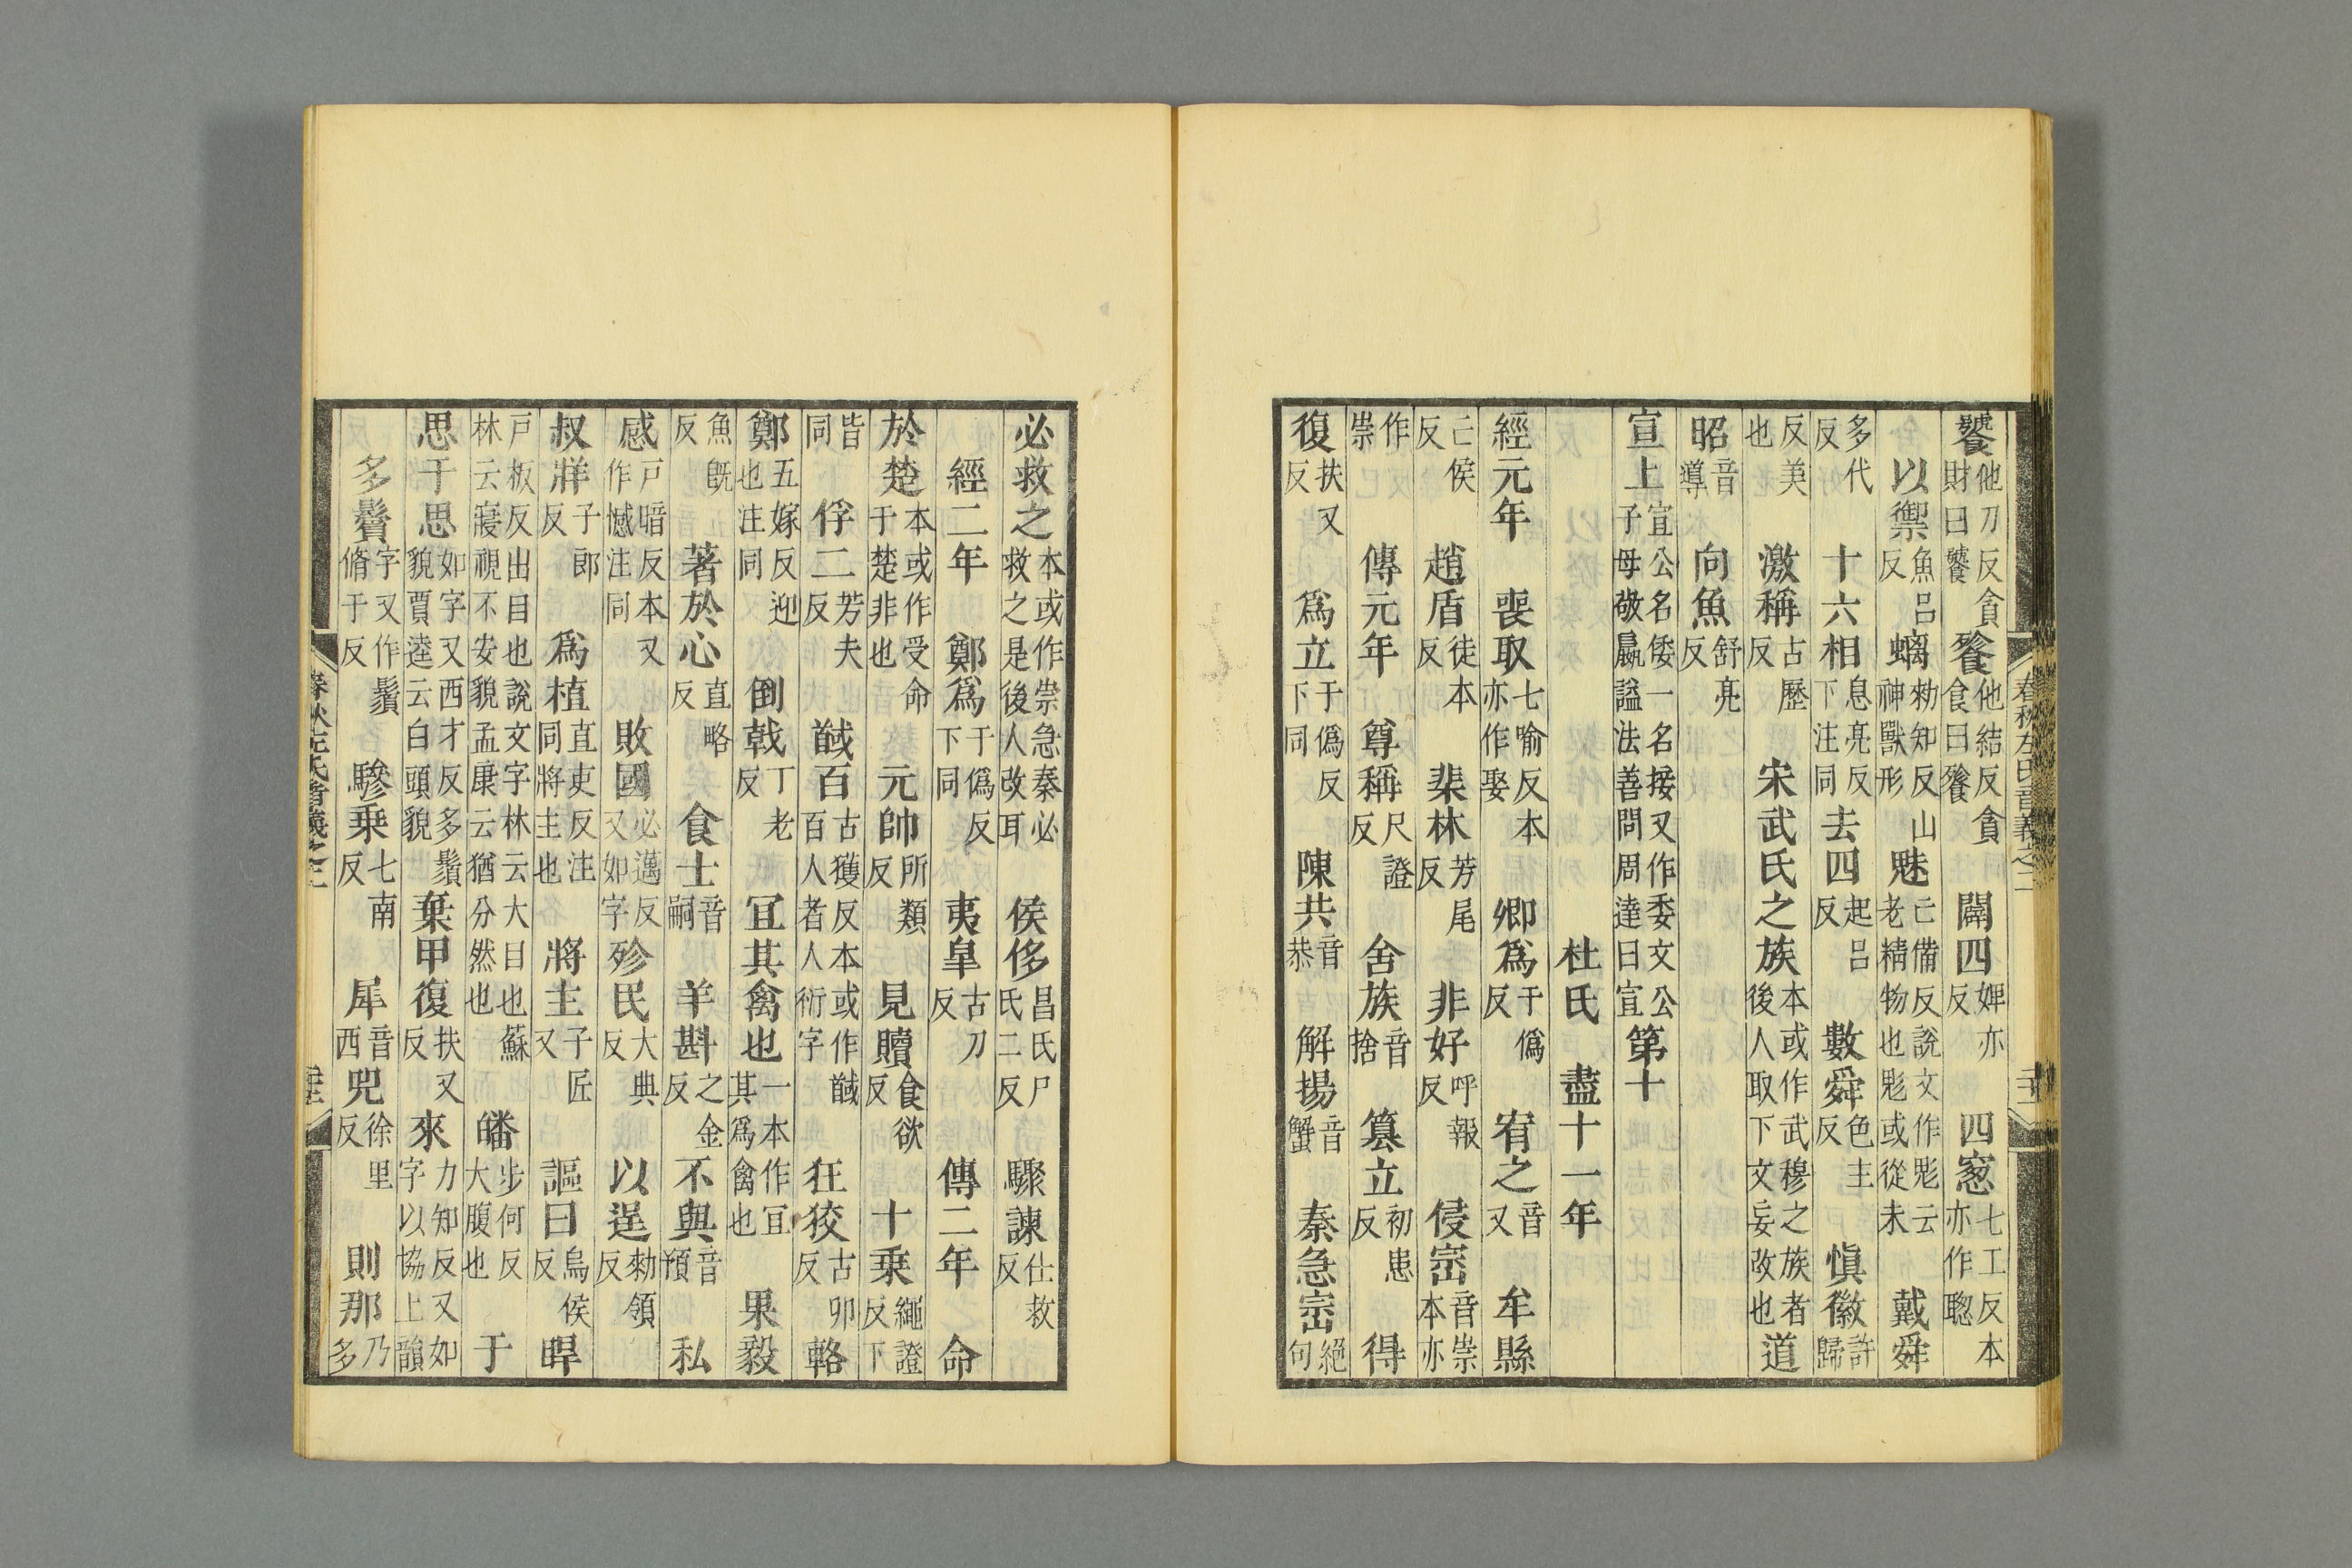 饕他刀反貪財曰饕 飻他結反貪食曰飻 闢四婢亦反 四窻七工反本亦作聦
以禦魚呂反 螭勑知反山神獸形 魅亡備反說文作鬽云老精物也鬽或從未 戴舜
多代反 十六相息亮反下注同 去四起呂反 數舜色主反 愼徽許歸
反美也 激稱古歷反 宋武氏之族本或作武穆之族者後人取下文妄改也 道
昭音導 向魚舒亮反
宣上宣公名倭一名接又作委文公子母敬嬴謚法善問周達曰宣 第十
杜氏 盡十一年
經元年 喪取七喻反本亦作娶 卿爲于僞反 宥之音又 牟縣
亡侯反 趙盾徒本反 棐林芳尾反 非好呼報反 侵崈音崇本亦
作崇 傳元年 尊稱尺證反 舍族音捨 簒立初患反 得
復扶又反 爲立于僞反下同 陳共音恭 解揚音蟹 秦急崈絕句
必救之本或作崇急秦必救之是後人改耳 侯侈昌氏尸氏二反 驟諫仕救反
經二年 鄭爲于僞反下同 夷臯古刀反 傳二年 命
於楚本或作受命于楚非也 元帥所類反 見贖食欲反 十乗繩證反下
皆同 俘二芳夫反 馘百古獲反本或作馘百人者人衍字 狂狡古卯反 輅
鄭五嫁反迎也注同 倒戟丁老反 冝其禽也一本作冝其爲禽也 果毅
魚旣反 著於心直略反 食士音嗣 羊斟之金反 不與音預 私
感戸暗反本又作憾注同 敗國必邁反又如字 殄民大典反 以逞勑領反
叔牂子郞反 爲植直吏反注同將主也 將主子匠又 謳曰烏侯反 睅
戸板反出目也說文字林云大目也蘇林云寢視不安貌孟康云猶分然也 皤步何反大腹也 于
思于思如字又西才反多鬚貌賈逵云白頭貌 棄甲復扶又反 來力知反又如字以協上韻
多鬚字又作鬚脩于反 驂乗七南反 犀音西 兕徐里反 則那乃多